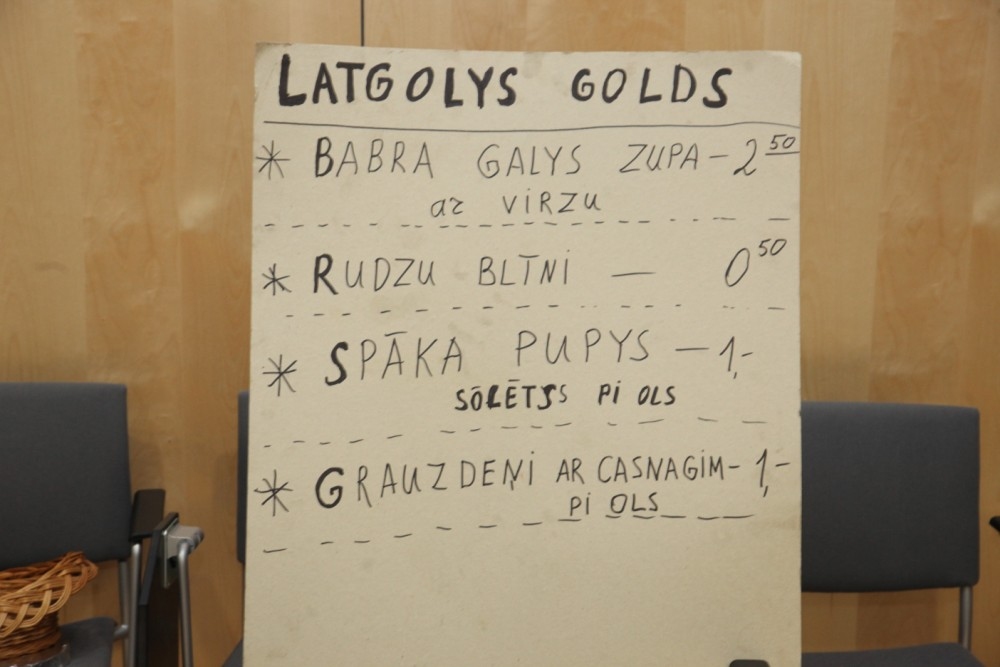 LATGOLYS GOLDS
* BABRA GALYS ZUPA - 2 50
ar VIRZU
* RUDZU BLĪNI — 0 50
* SPĀKA PUPYS — 1,-
SŌLĒTYS PI OLS
* GRAUZDEŅI AR CASNAGIM - 1,-
PI OLS